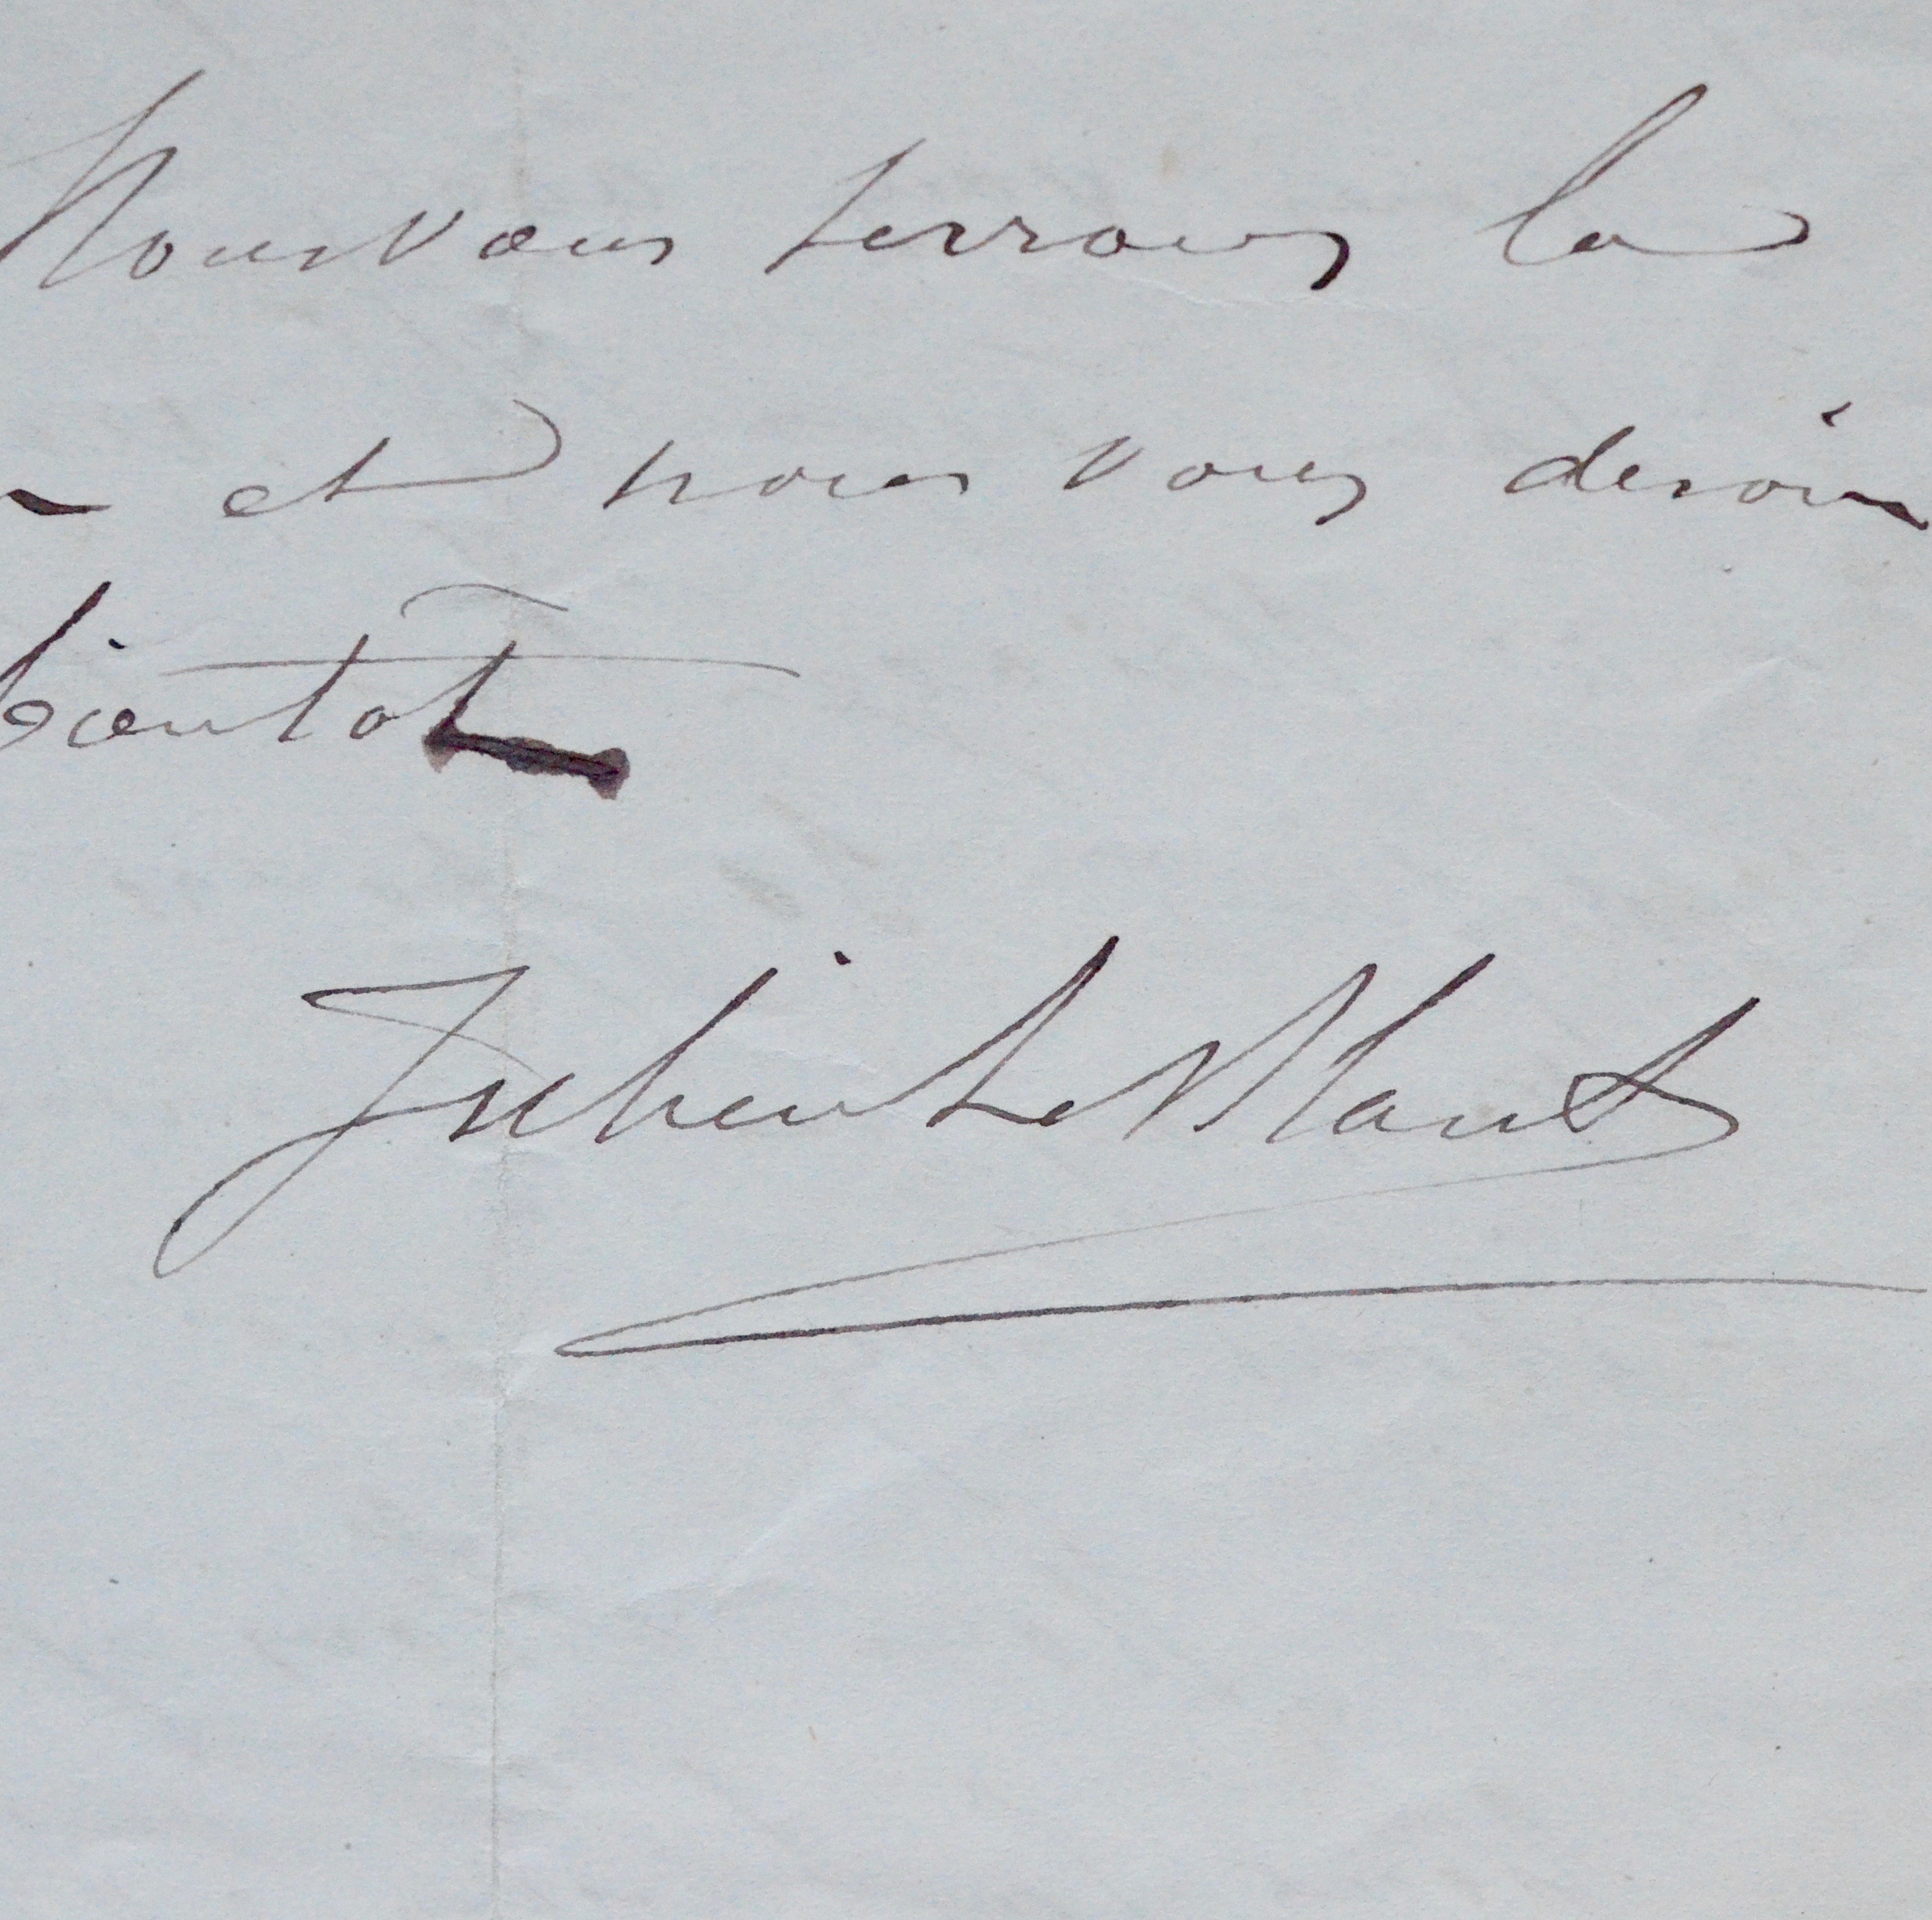 Nous vous serrons la
et nous vous
bientôt
Julien Le Blant